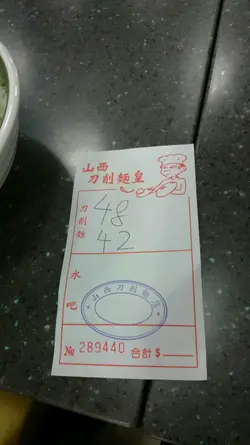 山西
刀削麵皇
刀削麵
48
42
水吧
山西刀削麵皇
№ 289440 合計$